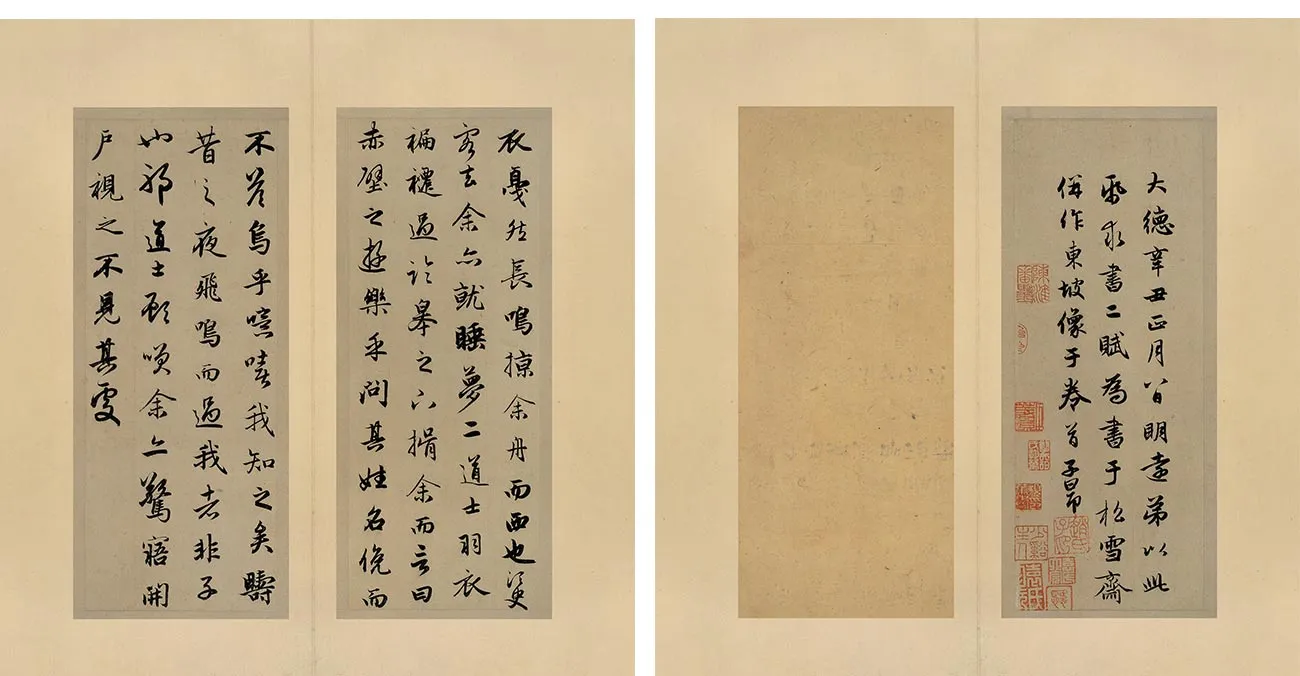 衣戛然長鳴掠余舟而西也須臾
客去余亦就睡夢二道士羽衣
褊褼過臨皋之下揖余而言曰
赤壁之遊樂乎問其姓名俛而
不荅烏乎噫嘻我知之矣疇
昔之夜飛鳴而過我者非子
也耶道士顧笑余亦驚寤開
戶視之不見其處
大德辛丑正月八日明遠弟以此
紙求書二賦為書于松雪齋
併作東坡像于卷首子昂